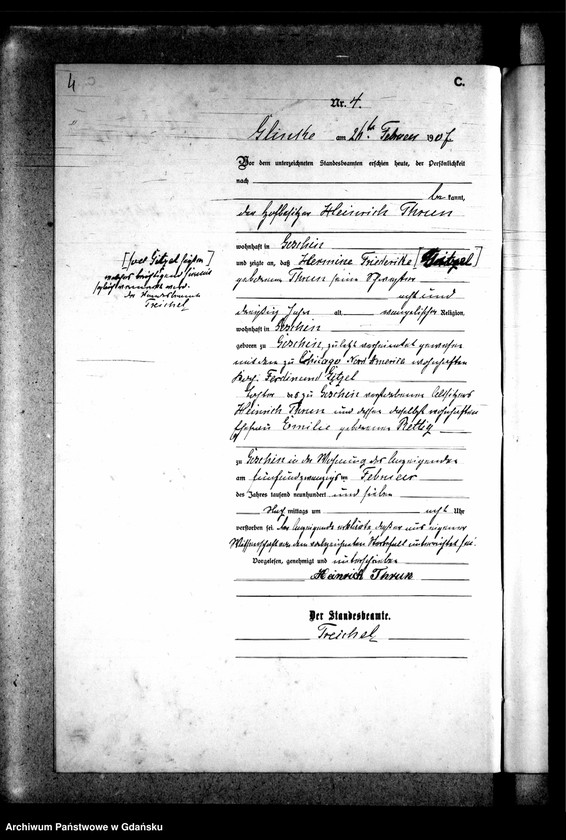 4
C.
Nr. 4.
Glincke am 26ten Februar 1907
Vor dem unterzeichneten Standesbeamten erschien heute, der Persönlichkeit
nach
be kannt,
der Hofbesitzer Heinrich Thrun
wohnhaft in Goschin
und zeigte an, daß Hermine Friederike
geborene Thrun seine Schwester
acht und
dreißig Jahre alt evangelischer Religion,
wohnhaft in Goschin
geboren zu Goschin, zuletzt verheiratet gewesen
mit dem zu Chicago Nord Amerika wohnhaften
Ferdinand Gitzel
Tochter des zu Goschin verstorbenen Altsitzers
Heinrich Thrun und dessen daselbst wohnhaften
Ehefrau Emilie geborenen Rettig
zu Goschin in der Wohnung des Anzeigenden
am fünfundzwanzigsten Februar
des Jahres tausend neunhundert und sieben
Nach mittags um acht Uhr
verstorben sei. Der Anzeigende erklärte, daß er aus eigener
Wissenschaft von dem vorbezeichneten Sterbefall unterrichtet sei.
Vorgelesen, genehmigt und unterschrieben
Heinrich Thrun
Der Standesbeamte.
Treichel
Gitzel
Der Standesbeamte
Treichel
Archiwum Państwowe w Gdańsku